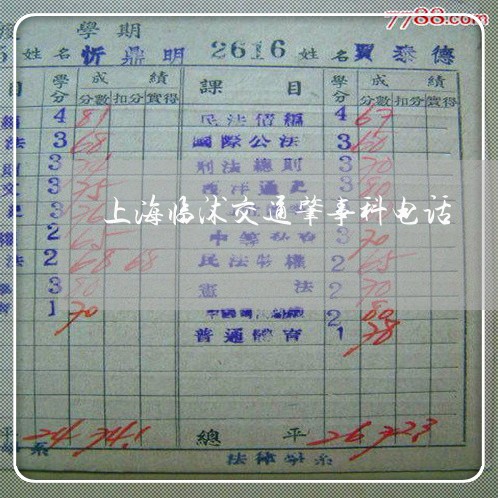 7788.com
學期
姓名 忻鼎明 2616 姓名 賈泰德
目 學分 成績 課目 學分 成績
分數 扣分 實得 分數 扣分 實得
4 81 民法債編 4 67
法 3 68 國際公法 3 60
3 刑法總則 3 70
3 75 西洋通史 3 80
上海临沭交通肇事科电话
3 3
權 2 65 3 70
法 2 68 68 民法物權 2 65
3 80 憲法 2 70
1 70 2 80
普通體育 1 78
平 24 74.1 總平 26 72.3
系 法律學系